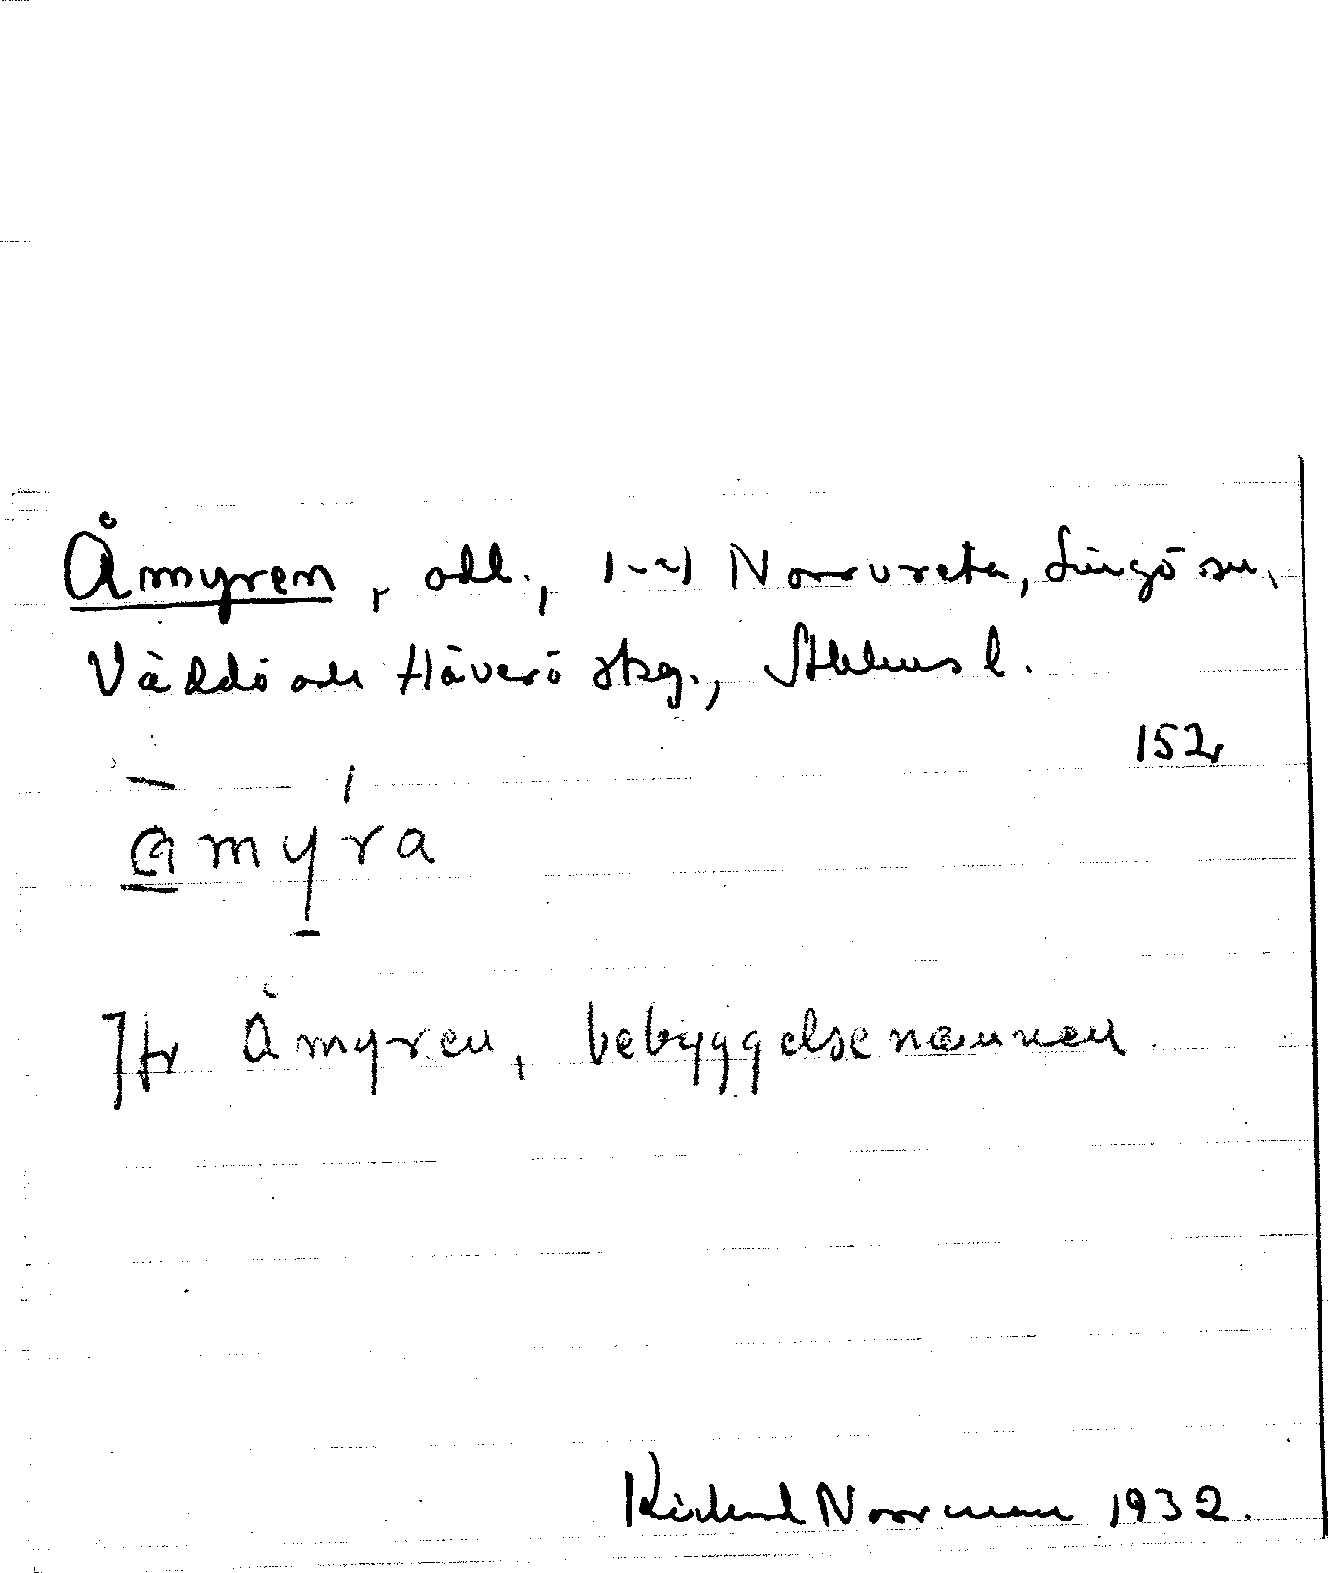 Åmyren, odl., 1~~1 Norrvreta, Singö sn,
Väddö och Häverö skg., Sthlms l.
152
amyra
Jfr Åmyren, bebyggelsenamnen
Norrman 1932.